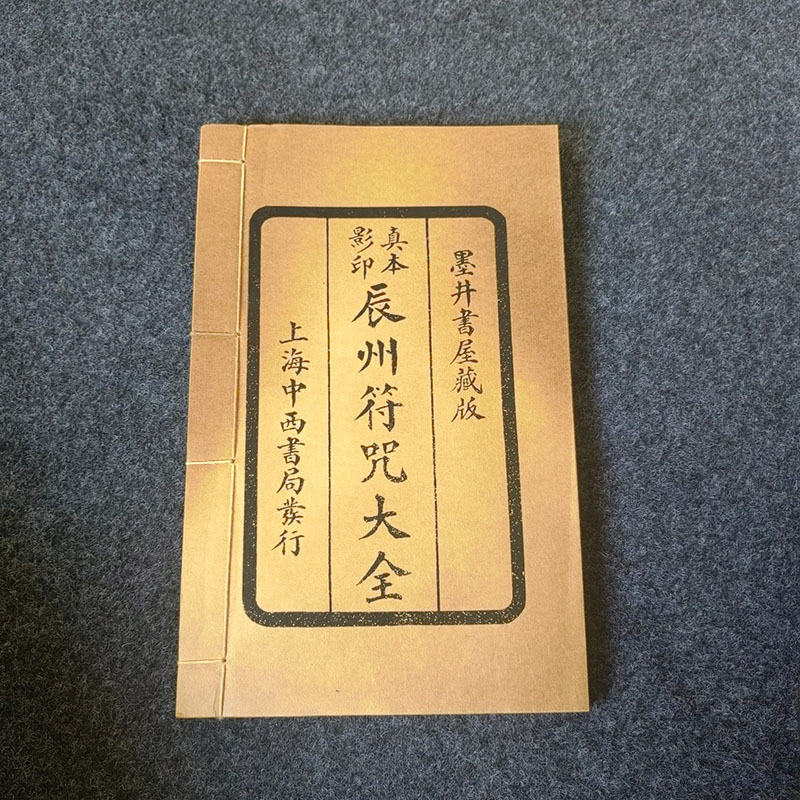 墨井書屋藏版
真本
影印
辰州符咒大全
上海中西書局發行